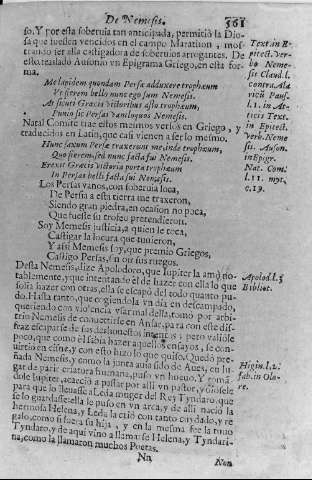 De Nemesis. 561
so. Y por esta soberuia tan anticipada, permitiò la Dio-
sa que fuessen vencidos en el campo Marathon, mos-
trando ser ella castigadora de soberuios arrogantes. De
esto, traslado Ausonio vn Epigrama Griego, en esta for-
ma.
Me lapidem quondam Persæ aduxere trophæum
Vt fierem bello nunc ego sum Nemesis.
At sicut Græcis victoribus asto trophæum,
Punio sic Persas vaniloquos Nemesis.
Natal Comite trae estos mesmos versos en Griego, y
traducidos en Latin, que casi vienen a ser lo mesmo.
Hunc saxum Persæ traxerunt me inde trophæum,
Quo fierem, sed nunc facta sum Nemesis.
Erexit Græcis victoria porta trophæum
In Persas bellis facta sui Nemesis.
Los Persas vanos, con soberuia loca,
De Persia a esta tierra me traxeron,
Siendo gran piedra, en ocasion no poca,
Que fuesse su trofeo pretendieron.
Soy Nemesis justicia, a quien le toca,
Castigar la locura que tuuieron,
Y assi Nemesis soy, que premio Griegos,
Castigo Persas, en oir sus ruegos.
Desta Nemesis, dize Apolodoro, que Iupiter la amò no-
tablemente, y que intentando el de hazer con ella lo que
solia hazer con otras, ella se escapò del todo quanto pu-
do. Hasta tanto, que cogiendola vn dia en descampado,
queriendo con violencia vsar mal della, tomò por arbi-
trio Nemesis de conuertirse en Ansar, para con este dis-
fraz escaparse de sus deshonestos intentos; pero valiole
poco, que como el sabia hazer aquellos ensayos, se con-
uirtio en cisne, y con esto hizo lo que quiso. Quedò pre-
ñada Nemesis, y como la junta auia sido de Aues, en lu-
gar de parir criatura humana, puso vn hueuo. Y toman-
dole Iupiter, acaeciò a passar por alli vn pastor, y dioselo
para que lo lleuasse a Leda muger del Rey Tyndaro, que
se lo guardasse: ella le puso en vn arca, y de alli naciò la
hermosa Helena, y Leda la criò con tanto cuydado, y re-
galo, como si fuera su hija, y en la mesma fee la tuuo
Tyndaro, y de aqui vino a llamarse Helena, y Tyndari-
na, como la llamaron muchos Poetas.
Nn Non
Text. in E-
pitect. ver-
bo Neme-
sis Claud. l.
contra Ala
ricũ Paus.
l. 1. in At-
ticis Text.
in Epitect.
verb. Neme
sis. Auson.
in Epigr.
Nat. Com.
l. 11. myt.
c. 19.
Apolod. l. 3
Bibliot.
Higin. l. 2.
fab. in Olo-
re.